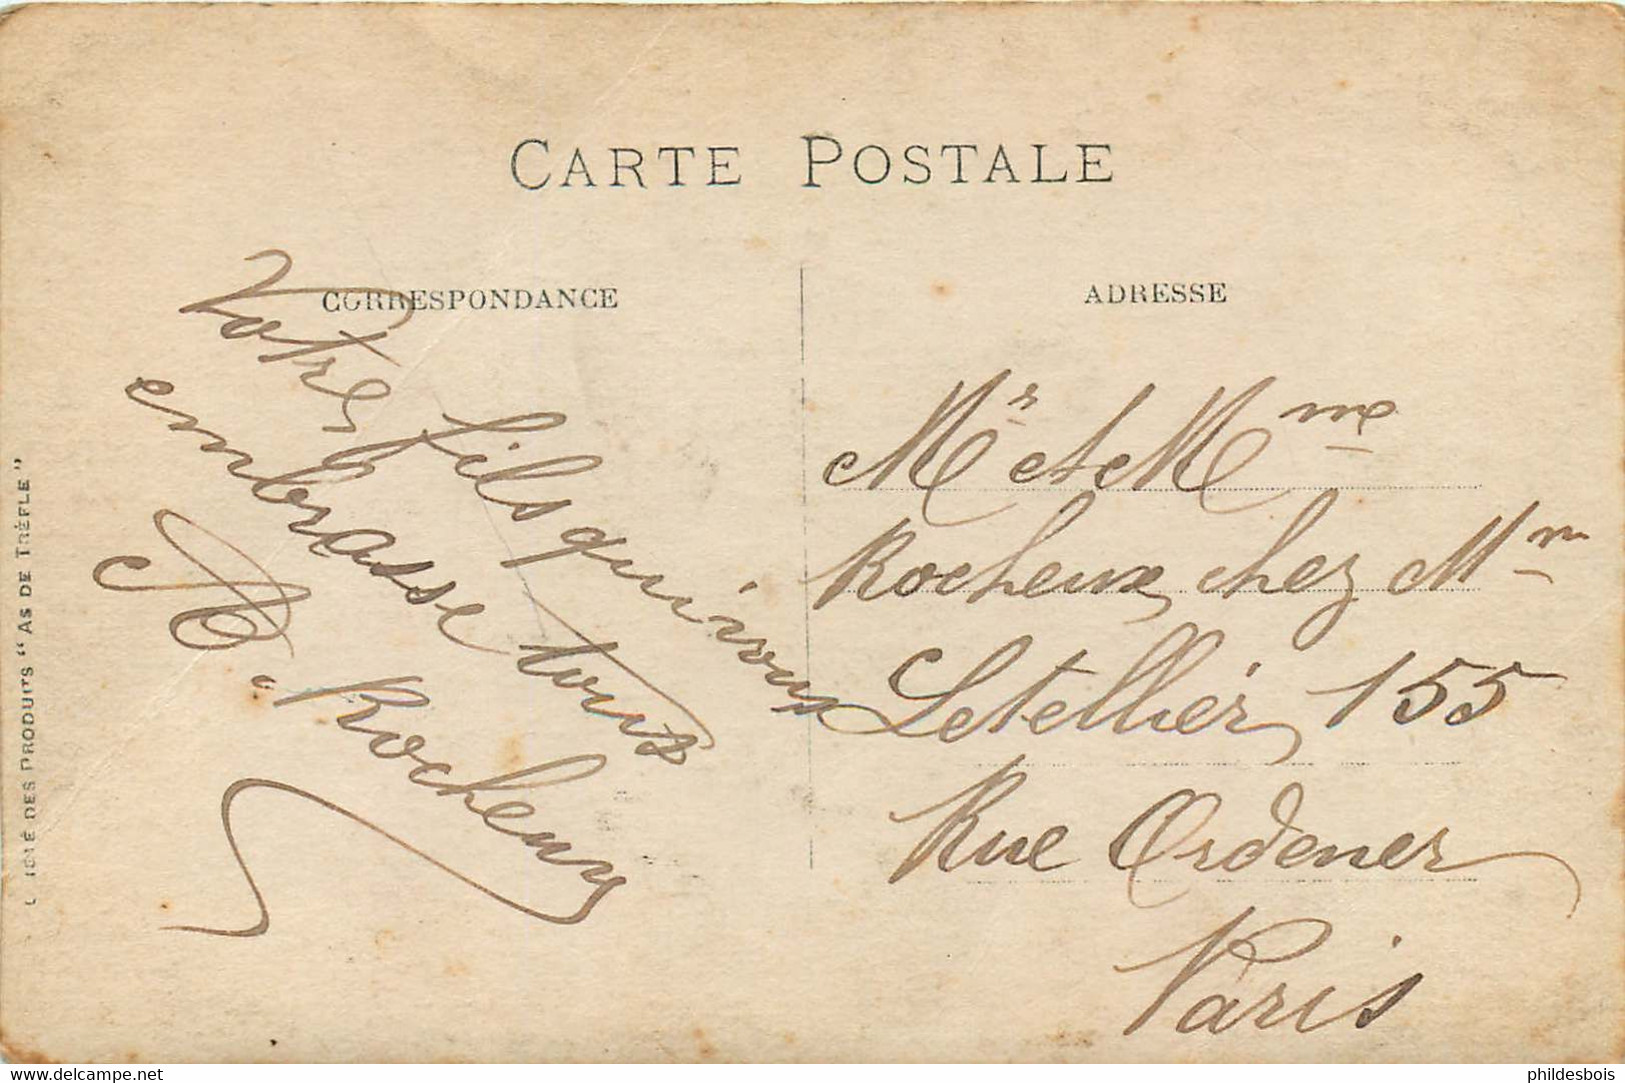 CARTE POSTALE
CORRESPONDANCE
ADRESSE
Votre fils qui vous
embrasse tous
M. Rocheux
Mr et Mme
Rocheux chez Mm
Letellier 155
Rue Ordener
Paris
DES PRODUITS "AS DE TRÈFLE"
www.delcampe.net
phildesbois